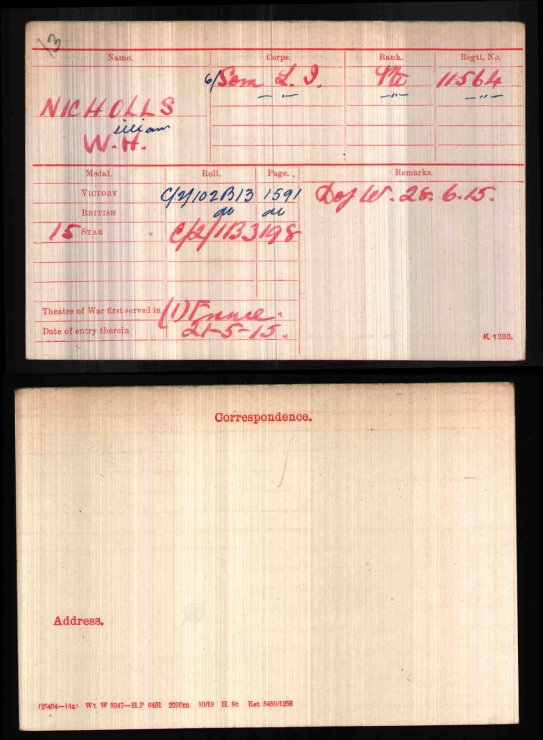 13
Name. Corps. Rank. Regtl. No.
6/Som L. I. Pte 11564
NICHOLLS -"- -"- -"-
illiam
W. H.
Medal. Roll. Page. Remarks.
VICTORY C/2/102B13 1591 D of W. 28.6.15.
BRITISH do do
15 STAR C/2/1B3 198
Theatre of War first served in (1) France.
Date of entry therein 21-5-15.
K. 1380.
Correspondence.
Address.
Wt. W 5347—H.P 6451 2000m. 10/19 H. St